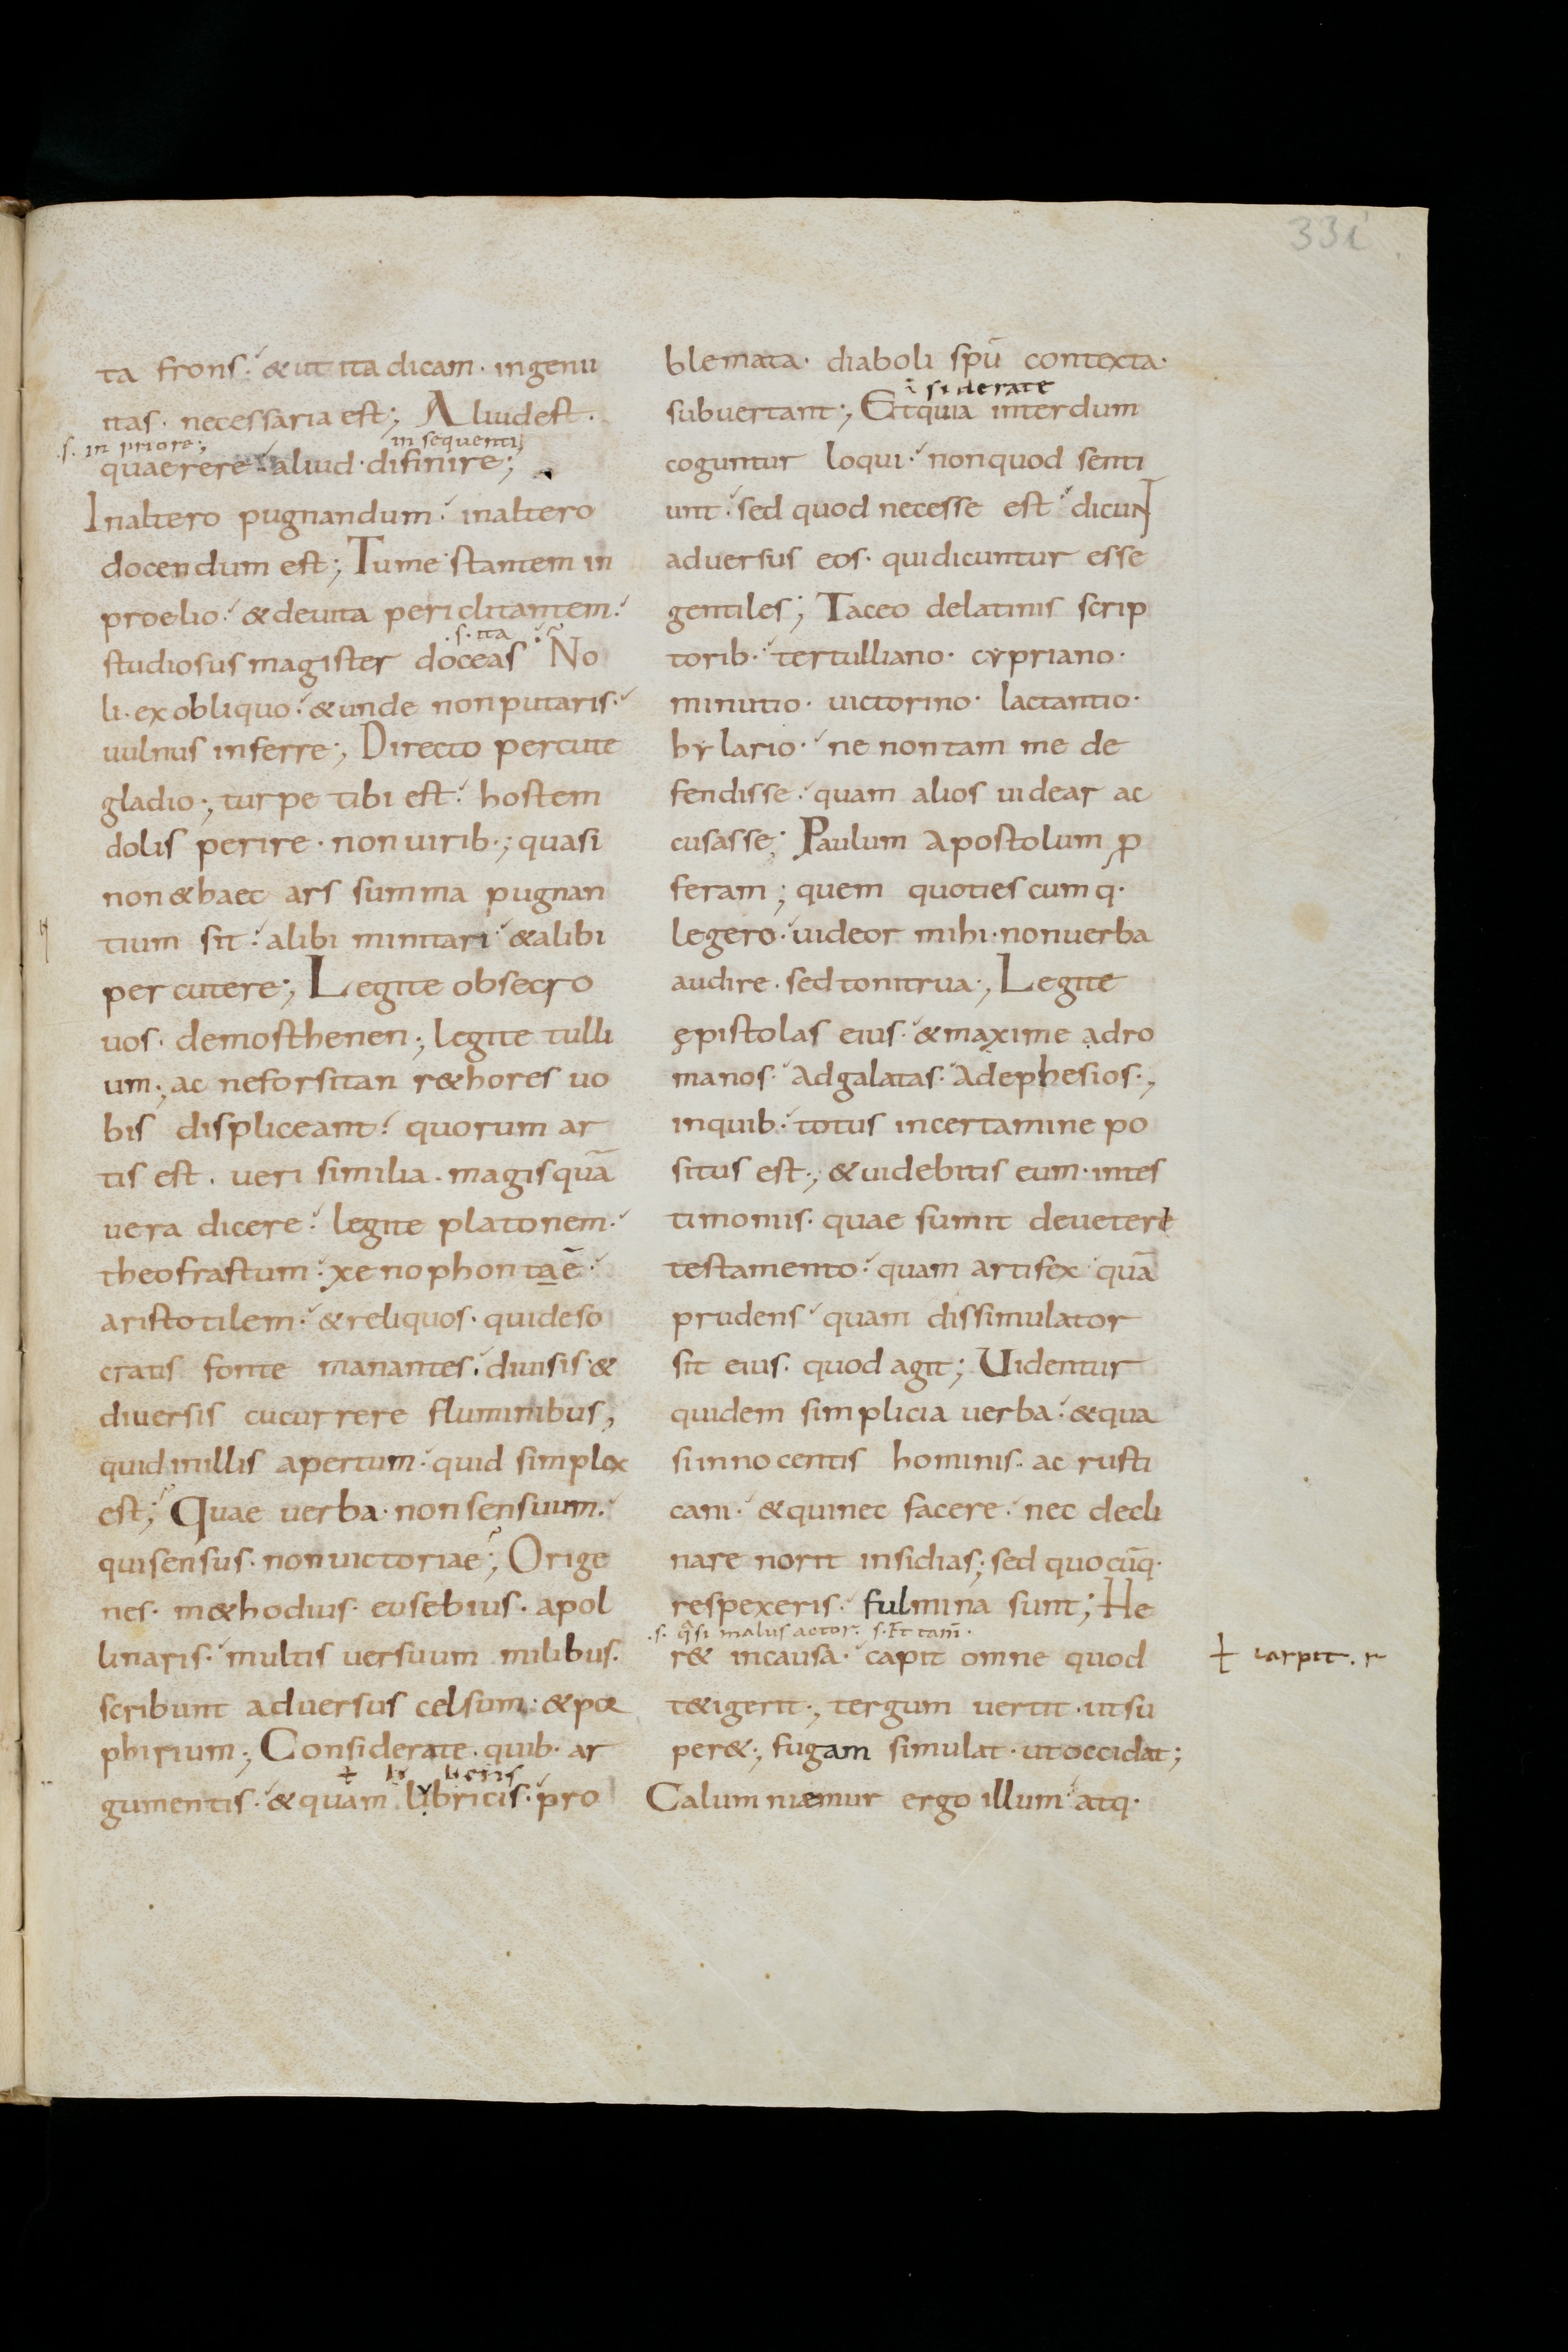 331
ta frons. & ut ita dicam. ingenu
itas. necessaria est; Aliud est.
.s. in priore; in sequenti;
quaerere. aliud. difinire;
In altero pugnandum. in altero
docendum est; Tu me stantem in
proelio. & de uita periclitantem.
.s. ita
studiosus magister doceas No
li. ex obliquo. & unde non putaris.
uulnus inferre; Directo percute
gladio; turpe tibi est. hostem
dolis perire. non uirib.; quasi
non & haec ars summa pugnan
tium sit. alibi minitari & alibi
percutere; Legite obsecro
uos. demosthenen; legite tulli
um; ac ne forsitan r&hores uo
bis displiceant. quorum ar
tis est. ueri similia. magis quā
uera dicere. legite platonem.
theofrastum. xenophontaē.
aristotilem. & reliquos. qui de so
cratis fonte manantes. diuisis. &
diuersis cucurrere fluminibus,
quid in illis apertum. quid simplex
est; Quae uerba. non sensuum.
qui sensus. non uictoriae; Orige
nes. m&hodius. eusebius. apol
linaris. multis uersuum milibus.
scribunt aduersus celsum. & por
phirium; Considerate. quib. ar
gumentis. & quam lybricis. pro
blemata. diaboli spū contexta.
siderate
subuertant; Et quia interdum
coguntur loqui. non quod senti
unt. sed quod necesse est dicunt
aduersus eos. qui dicuntur esse
gentiles; Taceo de latinis scrip
torib. tertulliano. cypriano.
minutio. uictorino. lactantio.
hylario. ne non tam me de
fendisse. quam alios uidear ac
cusasse; Paulum apostolum p̱
feram; quem quotiescumq.
legero. uideor mihi. non uerba
audire. sed tonitrua; Legite
ępistolas eius. & maxime ad ro
manos. ad galatas. ad ephesios;
in quib. totus in certamine po
situs est; & uidebitis eum. in tes
timoniis. quae sumit de uetere
testamento. quam artifex quā
prudens quam dissimulator
sit eius. quod agit; Uidentur
quidem simplicia uerba. & qua
si innocentis hominis. ac rusti
cani. & qui nec facere. nec decli
nare norit insidias; sed quocūq.
respexeris. fulmina sunt; He
.s. q̄si malus actor. s. Et tam̄.
r& in causa. capit omne quod
+ carpit. r
t&igerit; tergum uertit. ut su
per&; fugam simulat. ut occidat;
Calumniemur ergo illum atq.